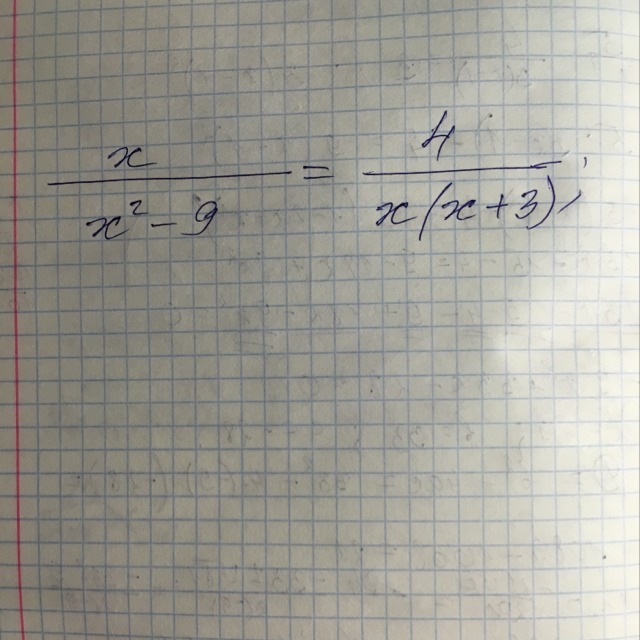 x/(x² - 9) = 4/(x(x+3));